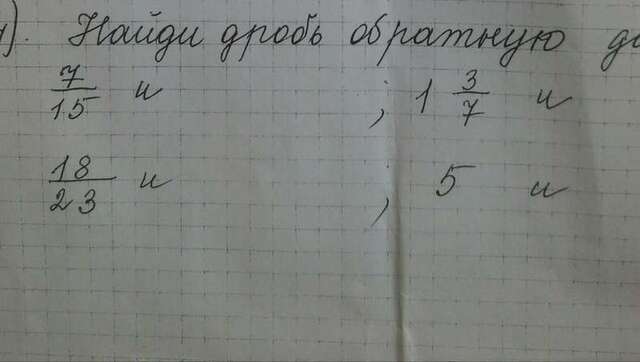 ). Найди дробь обратную
7/15 и ; 1 3/7 и
18/23 и , 5 и